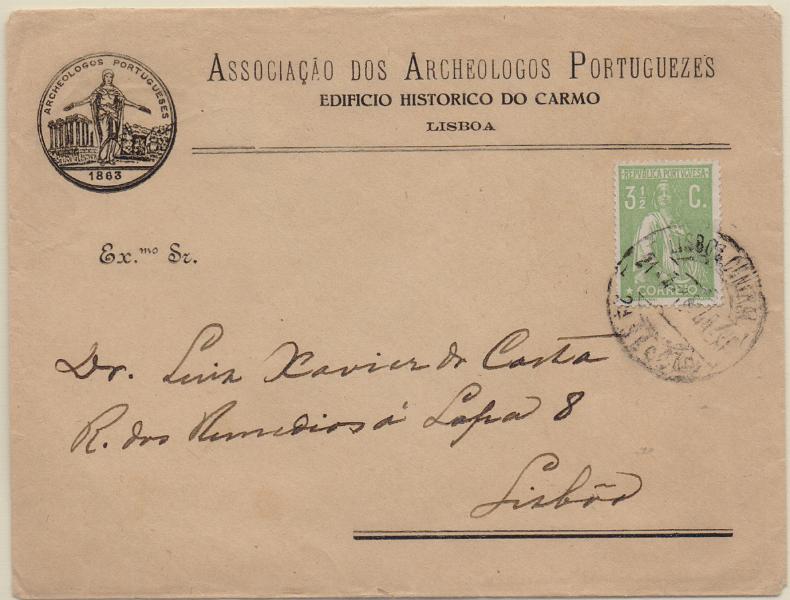 ASSOCIAÇÃO DOS ARCHEOLOGOS PORTUGUEZES
EDIFICIO HISTORICO DO CARMO
LISBOA
ARCHEOLOGOS PORTUGUESES
1863
REPUBLICA PORTUGUESA
3 1/2 C.
CORREIO
LISBOA CENTRAL
Ex.mo Sr.
Dr. Luiz Xavier da Costa
R. dos Remedios á Lapa 8
Lisbôa